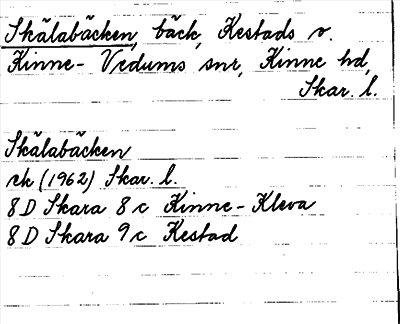 Skälabäcken, bäck, Kestads o.
Kinne-Vedums snr, Kinne hd,
Skar. l.
Skälabäcken
ek (1962) Skar. l.
8D Skara 8c Kinne-Kleva
8D Skara 9c Kestad